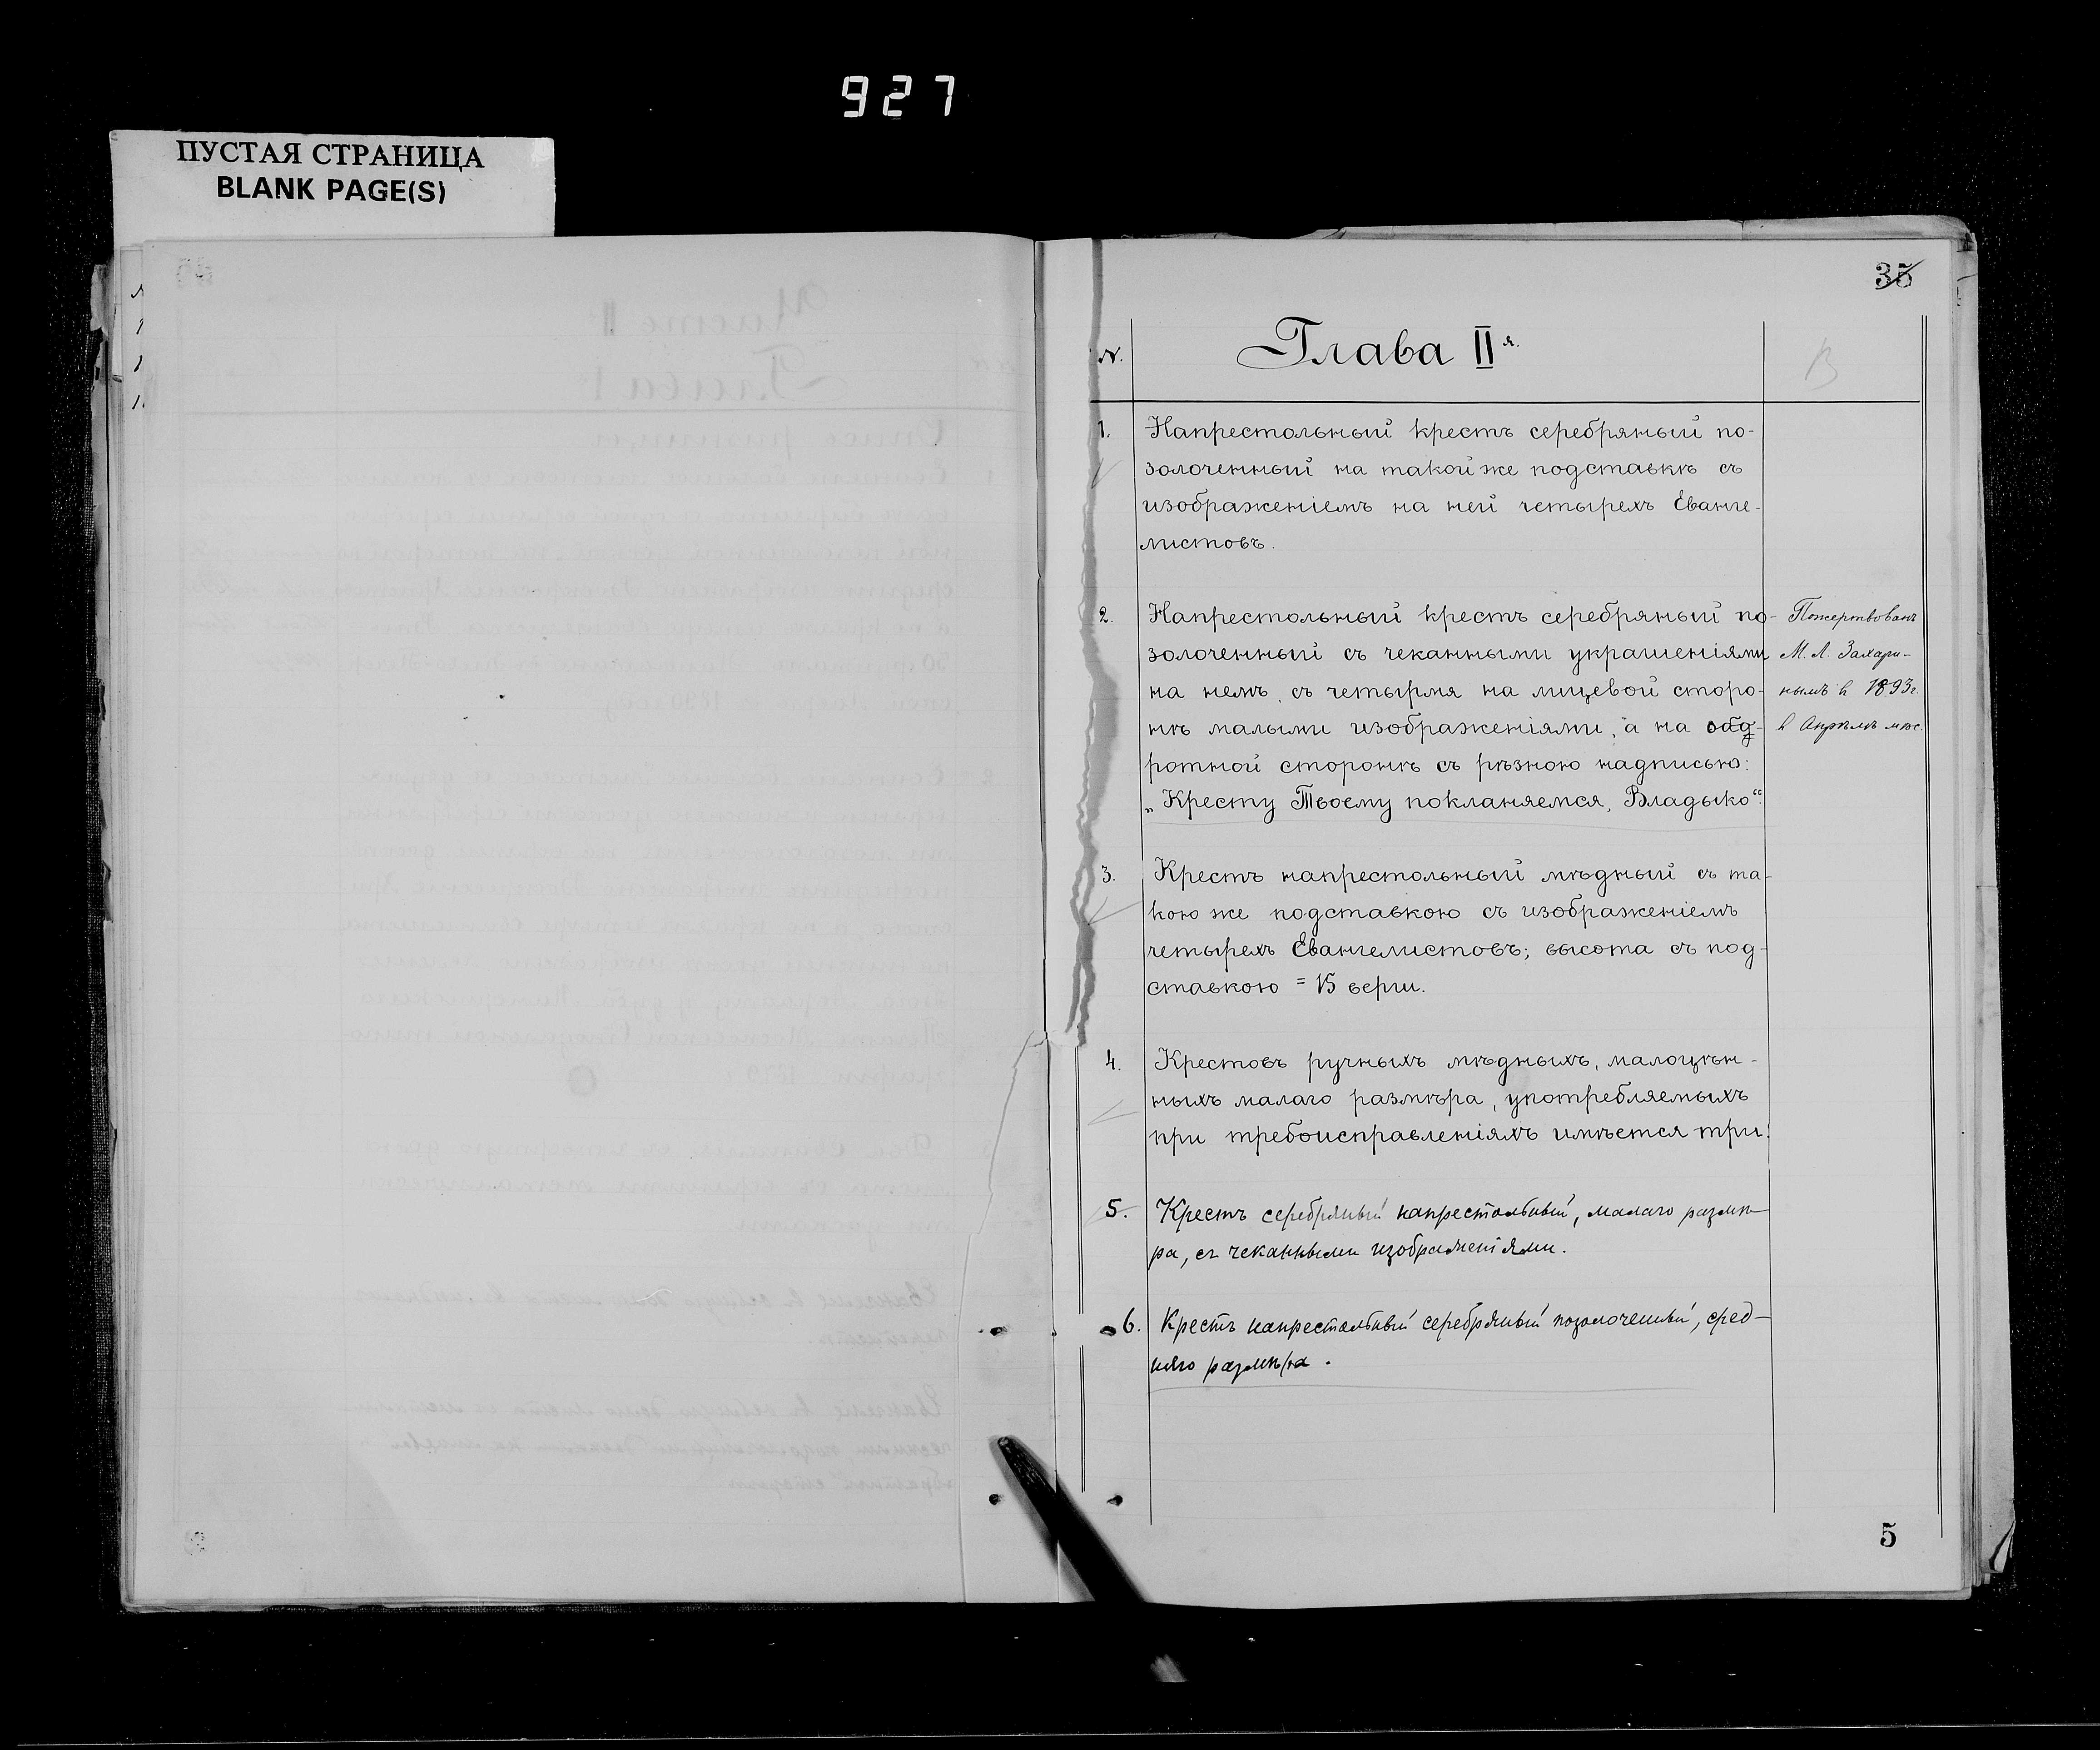 927
ПУСТАЯ СТРАНИЦА
BLANK PAGE(S)
35
№.
Глава II я.
В
1. Напрестольный крестъ серебряный по-
золоченный на такой же подставкѣ съ
изображеніемъ на ней четырехъ Еванге-
листовъ.
2. Напрестольный крестъ серебряный по-
золоченный съ чеканными украшеніями
на немъ, съ четырмя на лицевой сторо-
нѣ малыми изображеніями, а на
ротной сторонѣ съ рѣзною надписью:
„Кресту Твоему покланяемся, Владыко“.
Пожертвованъ
М. Л. Захари-
нымъ в 1893 г.
в Апрѣлѣ мѣс.
3. Крестъ напрестольный мѣдный съ та-
кою же подставкою съ изображеніемъ
четырехъ Евангелистовъ; высота съ под-
ставкою = 15 верш.
4. Крестовъ ручныхъ мѣдныхъ, малоцѣн-
ныхъ малаго размѣра, употребляемыхъ
при требоисправленіяхъ имѣется три.
5. Крестъ серебряный напрестольный, малаго размѣ-
ра, съ чеканными изображеніями.
6. Крестъ напрестольный серебряный позолоченный, сред-
няго размѣра.
5